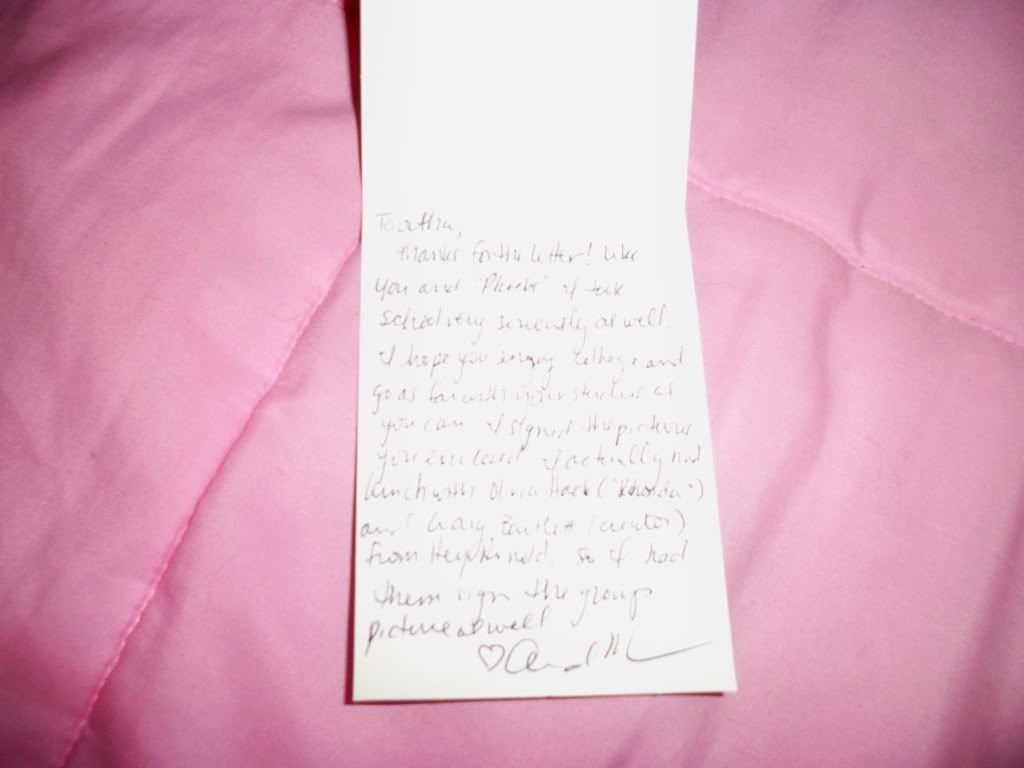 Thanks for the letter! Like
you and "Phoebe" I take
school very seriously as well.
I hope you enjoy college and
go as far with your studies as
you can. I signed the pictures
you enclosed. I actually had
lunch with Olivia Hack ("Rhonda")
and Craig Bartlett (creator)
from Hey Arnold, so I had
them sign the group
picture as well